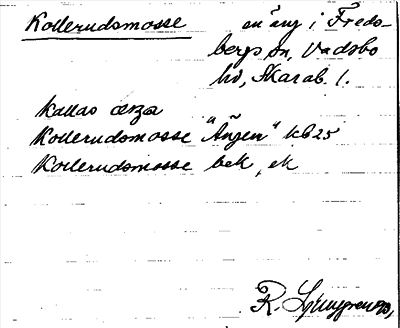 Kollerudsmosse en äng i Freds-
bergs sn, Vadsbo
hd, Skarab. l.
kallas också
Kollerudsmosse "Ängen" kb25
Kollerudsmosse bek, ek
R. Ljunggren